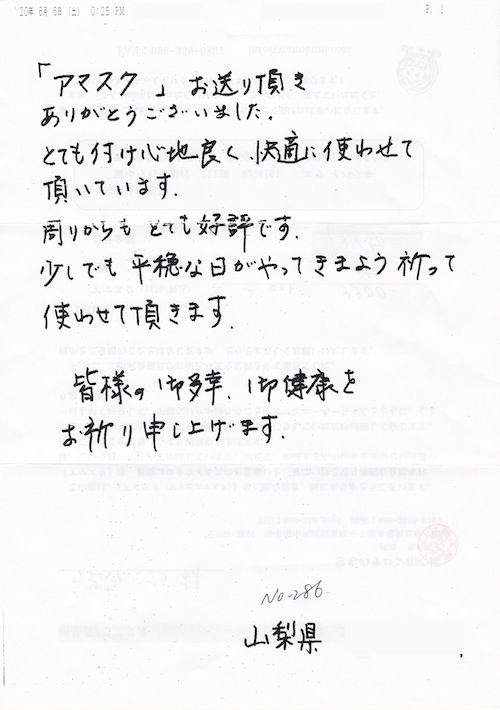 '20年 6月 6日(土) 0:25 PM P. 1
「アマスク」お送り頂き
ありがとうございました.
とても付け心地良く、快適に使わせて
頂いています.
周りからも とても好評です.
少しでも 平穏な日がやってきまよう 祈って
使わせて頂きます.
皆様の御多幸、御健康を
お祈り申し上げます.
No-286
山梨県